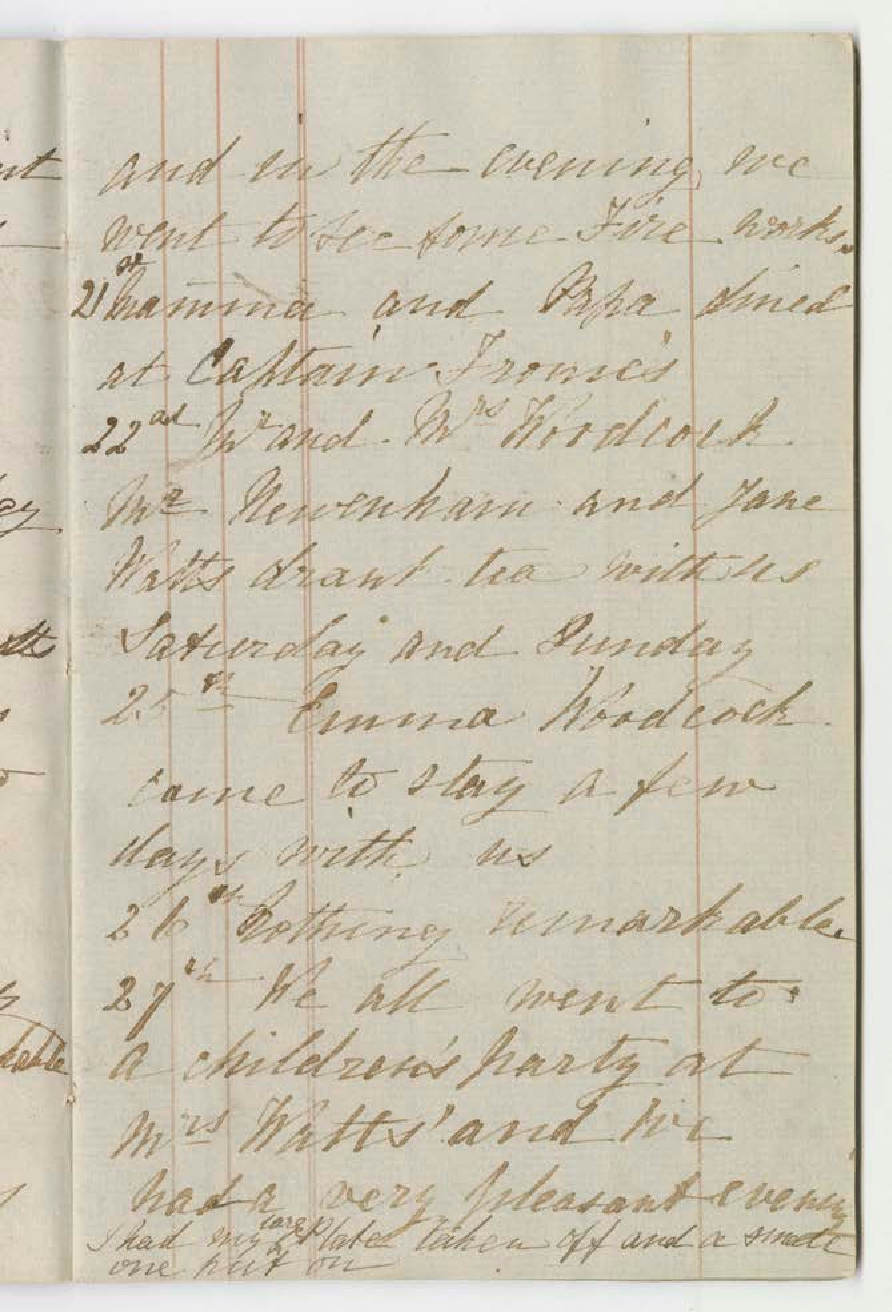 and in the evening we
went to see some Fire works.
21st Mamma and Papa dined
at Captain Frome's
22nd Mr and Mrs Woodcock
Mr Newenham and Jane
Watts drank tea with us
Saturday and Sunday
25th Emma Woodcock
came to stay a few
days with us
26th Nothing remarkable.
27th We all went to
a children's party at
Mrs Watts' and we
had a very pleasant evening
I had my large Plate taken off and a small
one put on